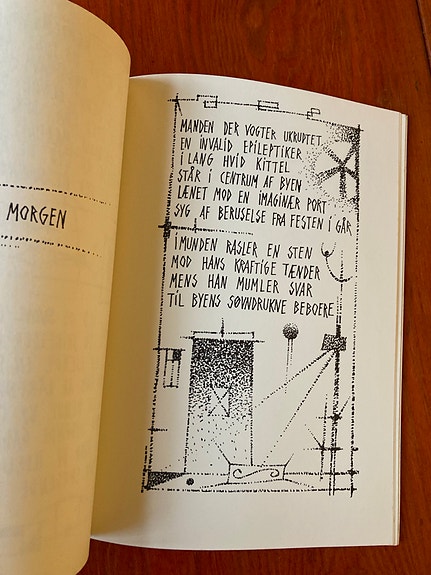 MORGEN
MANDEN DER VOGTER UKRUDTET
EN INVALID EPILEPTIKER
I LANG HVID KITTEL
STÅR I CENTRUM AF BYEN
LÆNET MOD EN IMAGINÆR PORT
SYG AF BERUSELSE FRA FESTEN I GÅR
I MUNDEN RASLER EN STEN
MOD HANS KRAFTIGE TÆNDER
MENS HAN MUMLER SVAR
TIL BYENS SØVNDRUKNE BEBOERE